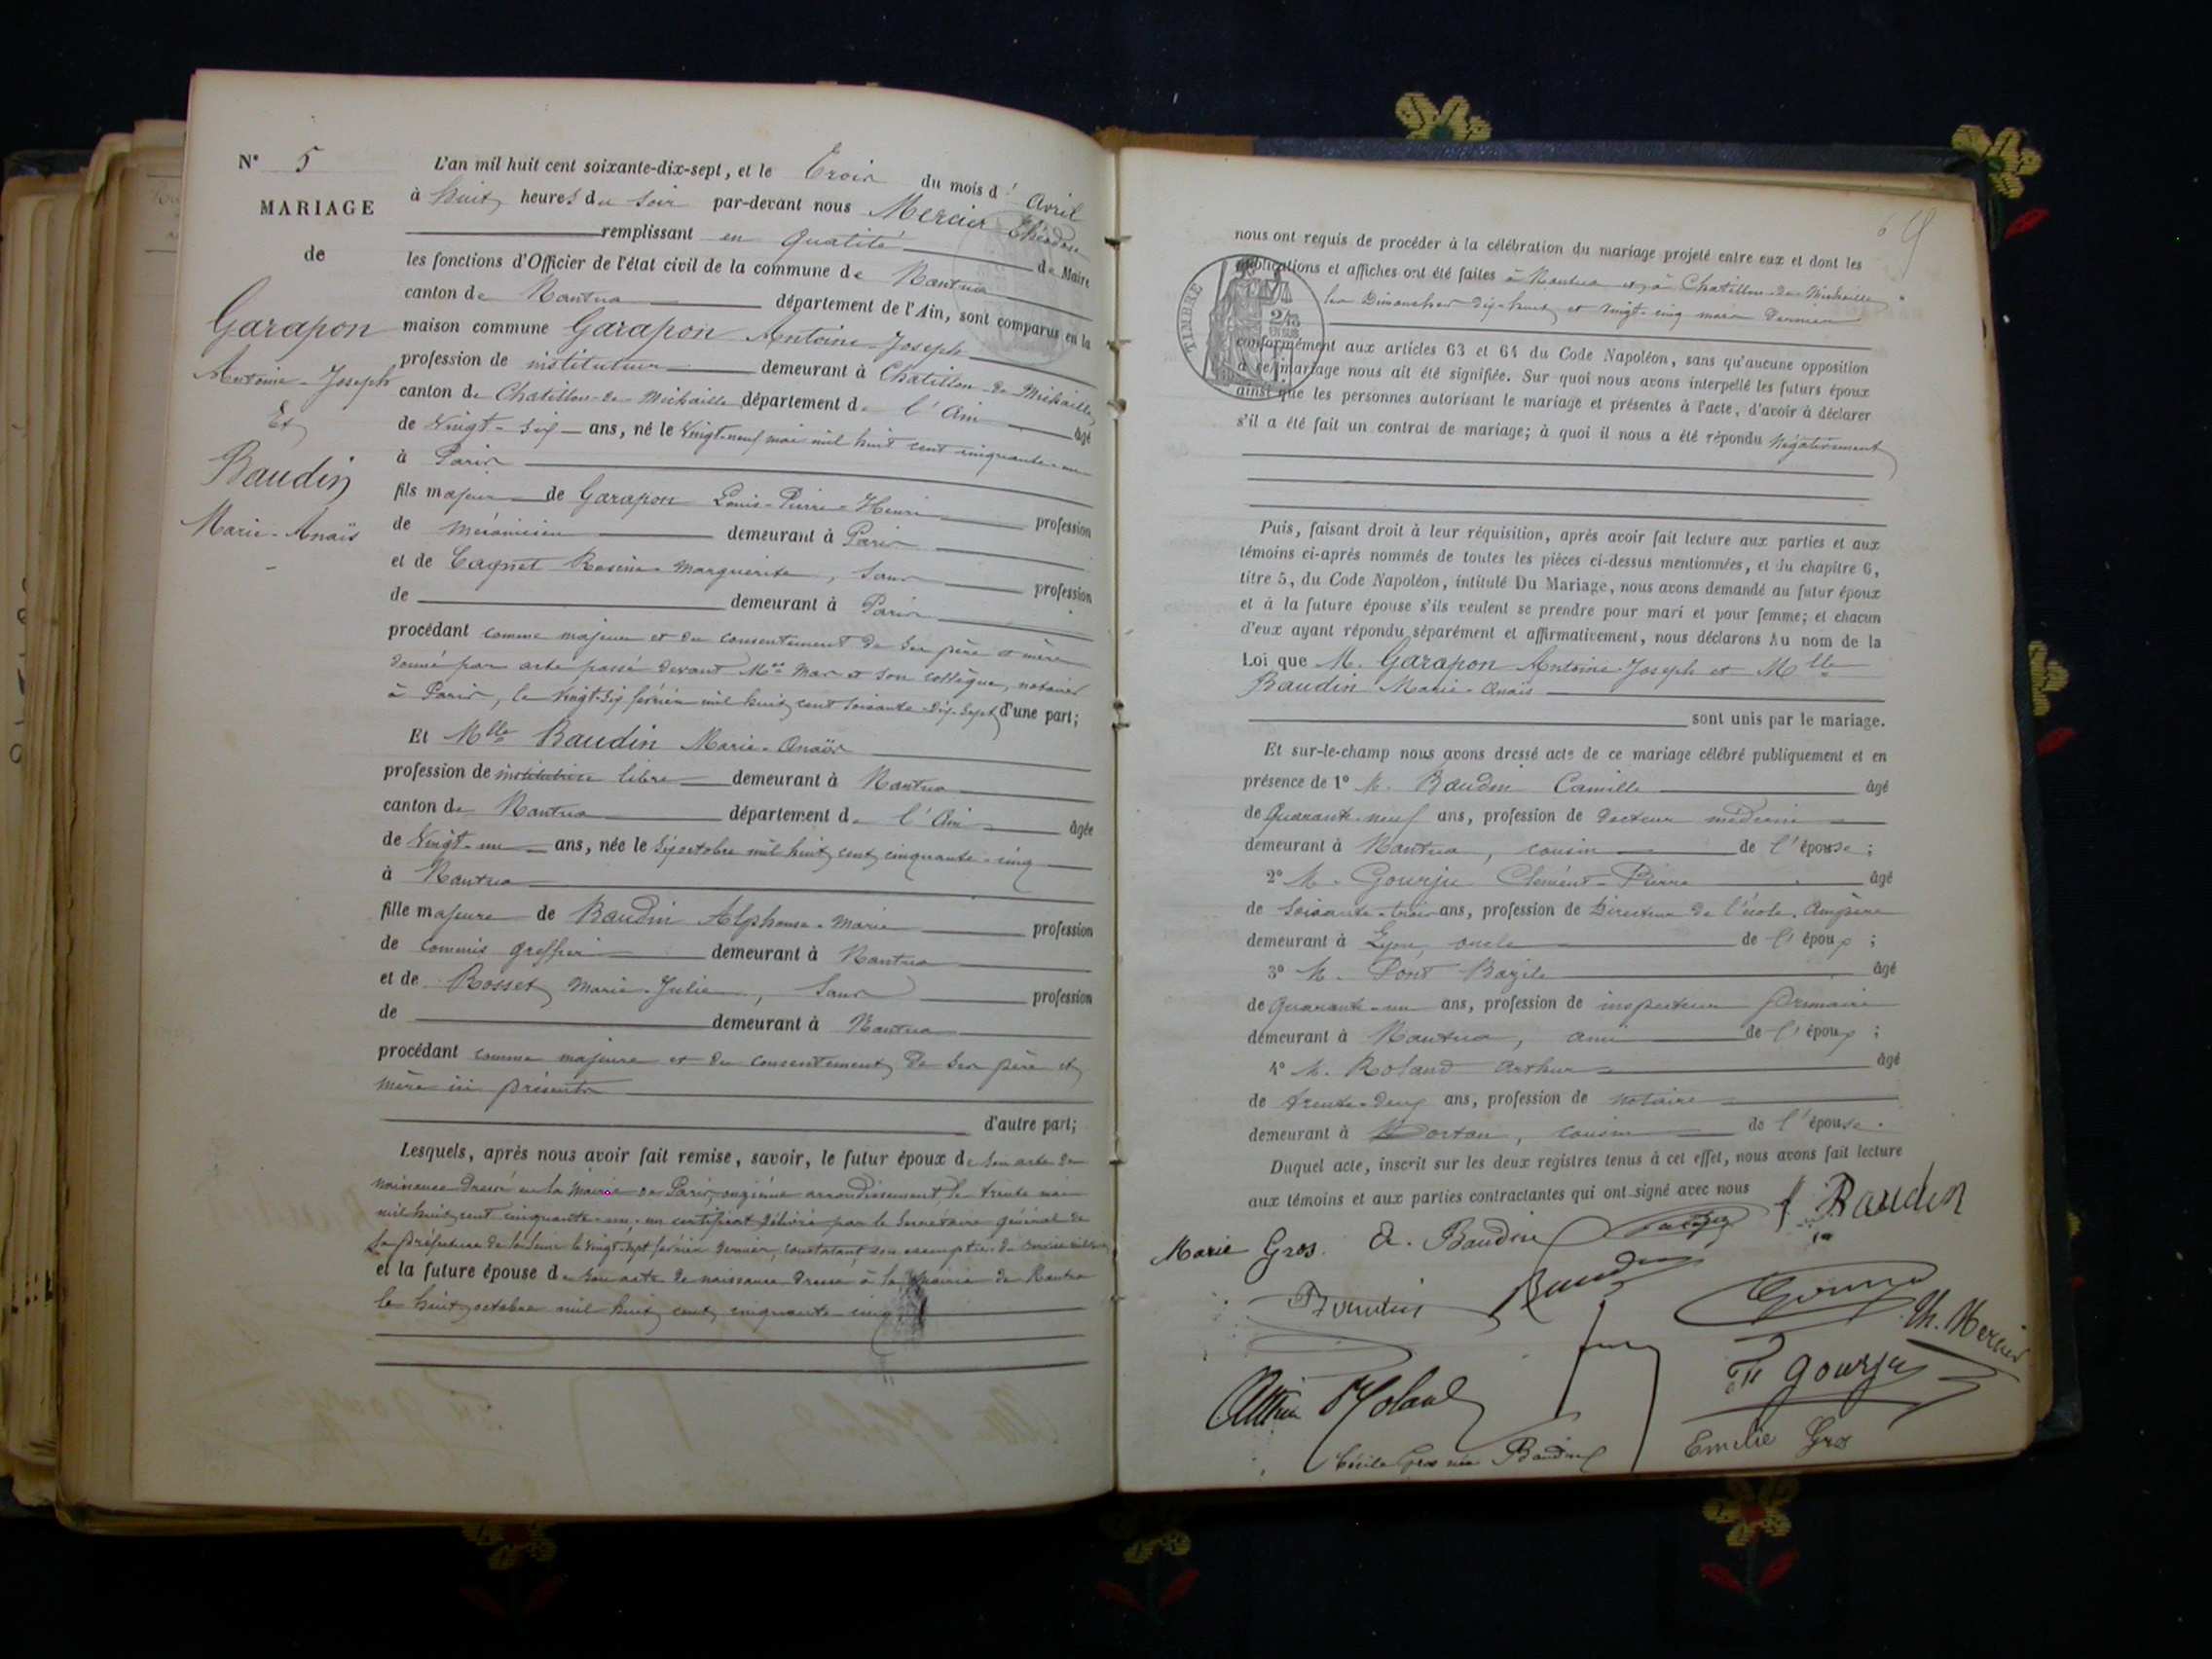 N° 5
MARIAGE
de
Garapon
Antoine-Joseph
Et
Baudin
Marie-Anaïs
L'an mil huit cent soixante-dix-sept, et le Trois du mois d'Avril
à huit heures du soir par-devant nous Mercier Théodore
remplissant en qualité de Maire
les fonctions d'Officier de l'état civil de la commune de Nantua
canton de Nantua département de l'Ain, sont comparus en la
maison commune Garapon Antoine-Joseph
profession de instituteur demeurant à Chatillon-de-Michaille
canton de Chatillon-de-Michaille département de l'Ain âgé
de Vingt-six ans, né le Vingt-neuf mai mil huit cent cinquante-un
à Paris
fils majeur de Garapon Louis-Pierre-Henri profession
de mécanicien demeurant à Paris
et de Cagnet Rosine-Marguerite, sans profession
de demeurant à Paris
procédant comme majeur et du consentement de ses père et mère
donné par acte passé devant Mes Mas et son collègue, notaires
à Paris, le vingt-six février mil huit cent soixante-dix-sept d'une part;
Et Mlle Baudin Marie-Anaïs
profession de institutrice libre demeurant à Nantua
canton de Nantua département de l'Ain âgée
de Vingt-un ans, née le six octobre mil huit cent cinquante-cinq
à Nantua
fille majeure de Baudin Alphonse-Marie profession
de commis greffier demeurant à Nantua
et de Rosset Marie-Julie, sans profession
de demeurant à Nantua
procédant comme majeure et du consentement de ses père et
mère ici présents
d'autre part;
Lesquels, après nous avoir fait remise, savoir, le futur époux de son acte de
naissance dressé en la Mairie de Paris, onzième arrondissement, le trente mai
mil huit cent cinquante-un, un certificat délivré par le Secrétaire général de
la préfecture de la Seine le vingt-sept février dernier, constatant son exemption du service militaire
et la future épouse de son acte de naissance dressé à la Mairie de Nantua
le huit octobre mil huit cent cinquante-cinq
69
nous ont requis de procéder à la célébration du mariage projeté entre eux et dont les
publications et affiches ont été faites à Nantua et à Chatillon-de-Michaille
les Dimanches dix-huit et vingt-cinq mars dernier
TIMBRE
conformément aux articles 63 et 64 du Code Napoléon, sans qu'aucune opposition
à ce mariage nous ait été signifiée. Sur quoi nous avons interpellé les futurs époux
ainsi que les personnes autorisant le mariage et présentes à l'acte, d'avoir à déclarer
s'il a été fait un contrat de mariage; à quoi il nous a été répondu Négativement
Puis, faisant droit à leur réquisition, après avoir fait lecture aux parties et aux
témoins ci-après nommés de toutes les pièces ci-dessus mentionnées, et du chapitre 6,
titre 5, du Code Napoléon, intitulé Du Mariage, nous avons demandé au futur époux
et à la future épouse s'ils veulent se prendre pour mari et pour femme; et chacun
d'eux ayant répondu séparément et affirmativement, nous déclarons Au nom de la
Loi que M. Garapon Antoine-Joseph et Mlle
Baudin Marie-Anaïs
sont unis par le mariage.
Et sur-le-champ nous avons dressé acte de ce mariage célébré publiquement et en
présence de 1° M. Baudin Camille âgé
de Quarante-neuf ans, profession de docteur médecin
demeurant à Nantua, cousin de l'épouse;
2° M. Gourju Clément-Pierre âgé
de soixante-trois ans, profession de Directeur de l'école Ampère
demeurant à Lyon, oncle de l'époux;
3° M. Pont Bazile âgé
de quarante-un ans, profession de inspecteur primaire
demeurant à Nantua, ami de l'époux;
4° M. Roland Arthur âgé
de trente-deux ans, profession de notaire
demeurant à Dortan, cousin de l'épouse.
Duquel acte, inscrit sur les deux registres tenus à cet effet, nous avons fait lecture
aux témoins et aux parties contractantes qui ont signé avec nous
Marie Gros. A. Baudin Baudin
Baudin Baudin Th. Mercier
Arthur Roland Gourju
Cécile Gros née Baudin Emilie Gros